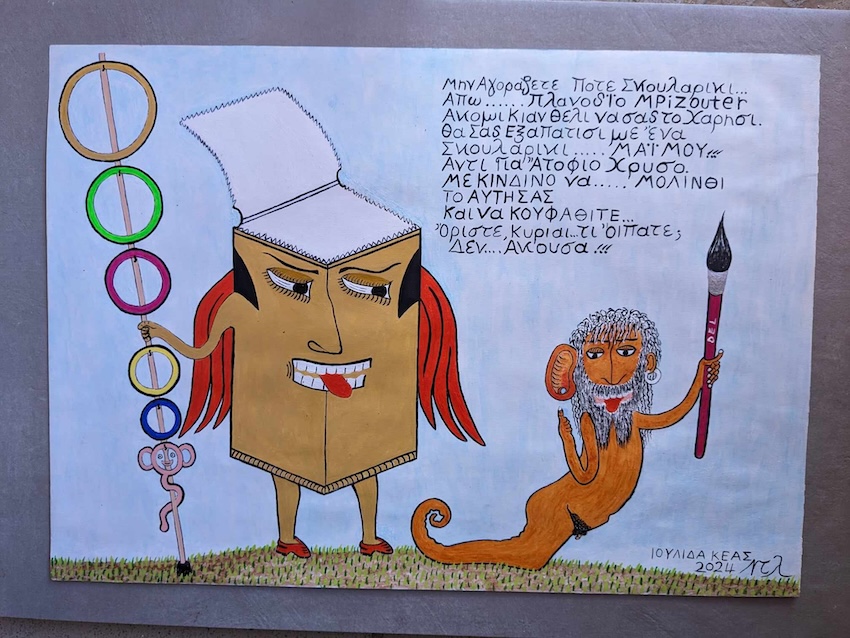 Μην Αγοράζετε Ποτε Σκουλαρικι...
Απω...... Πλανοδϊο ΜΡizouter
Ακομι Κι αν θελι να σας το Χαρησι.
Θα Σας Εξαπατισι με ένα
Σκουλάρικι..... ΜΑΪΜΟΥ!!!
Αντι Για Ἀτοφιο Χρυσο.
ΜΕ ΚΙΝΔΙΝΟ να..... ΜΟΛΙΝΘΙ
ΤΟ ΑΥΤΗ ΣΑΣ
Και να ΚΟΥΦΑΘΙΤΕ...
Ὁριστε, Κυριαι...τι ὈΙΠΑΤΕ;
Δεν.... Ακουσα.!!!
DEL
ΙΟΥΛΙΔΑ ΚΕΑΣ
2024 ντλ